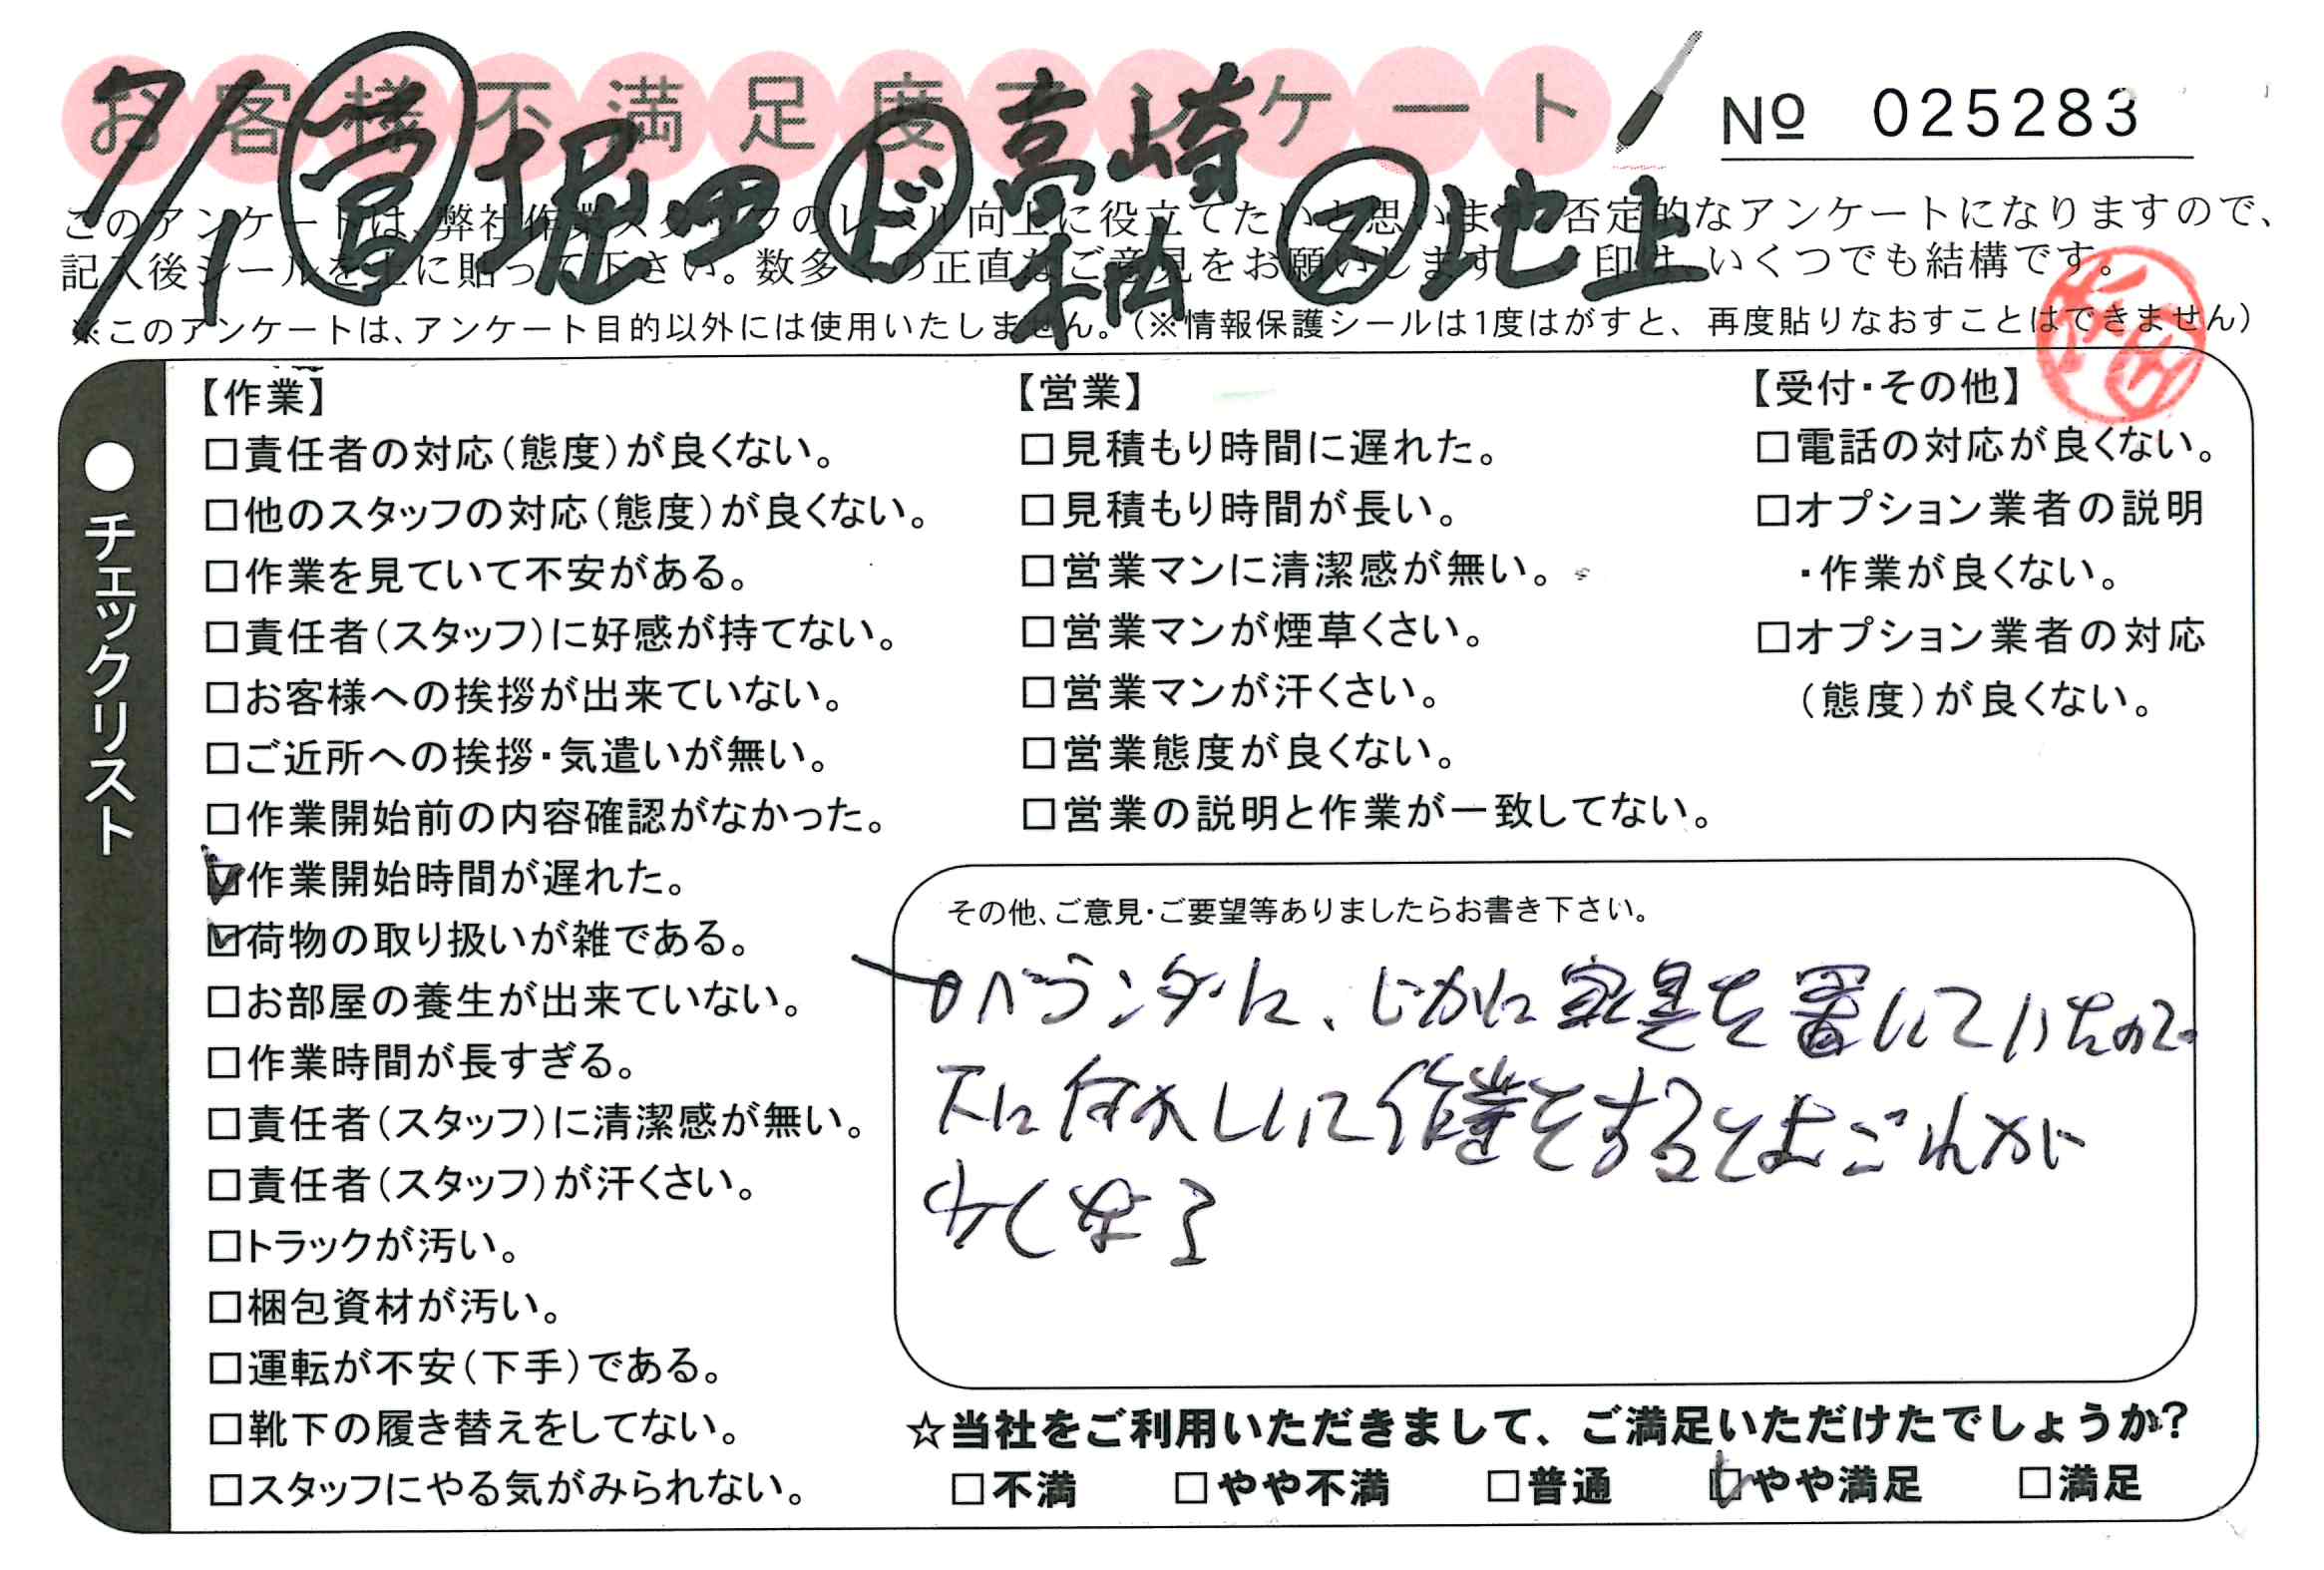 お客様不満足度アンケート
№ 025283
7/1 営 堀田 ド 高崎 ス 池上
柄
このアンケートは、弊社作業スタッフのレベル向上に役立てたいと思います。否定的なアンケートになりますので、
記入後シールを上に貼って下さい。数多くの正直なご意見をお願いします。 印は、いくつでも結構です。
※このアンケートは、アンケート目的以外には使用いたしません。(※情報保護シールは1度はがすと、再度貼りなおすことはできません)
●チェックリスト
【作業】
□責任者の対応(態度)が良くない。
□他のスタッフの対応(態度)が良くない。
□作業を見ていて不安がある。
□責任者(スタッフ)に好感が持てない。
□お客様への挨拶が出来ていない。
□ご近所への挨拶・気遣いが無い。
□作業開始前の内容確認がなかった。
☑作業開始時間が遅れた。
☑荷物の取り扱いが雑である。
□お部屋の養生が出来ていない。
□作業時間が長すぎる。
□責任者(スタッフ)に清潔感が無い。
□責任者(スタッフ)が汗くさい。
□トラックが汚い。
□梱包資材が汚い。
□運転が不安(下手)である。
□靴下の履き替えをしてない。
□スタッフにやる気がみられない。
【営業】
□見積もり時間に遅れた。
□見積もり時間が長い。
□営業マンに清潔感が無い。
□営業マンが煙草くさい。
□営業マンが汗くさい。
□営業態度が良くない。
□営業の説明と作業が一致してない。
【受付・その他】
□電話の対応が良くない。
□オプション業者の説明
・作業が良くない。
□オプション業者の対応
(態度)が良くない。
その他、ご意見・ご要望等ありましたらお書き下さい。
ベランダに、じかに家具を置いていたので
下に何かしいて作業をするとよごれが
少くなる
☆当社をご利用いただきまして、ご満足いただけたでしょうか?
□不満 □やや不満 □普通 ☑やや満足 □満足